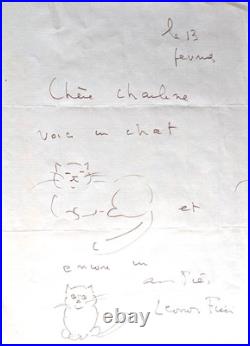 le 13
février
Chère Charlene
voici un chat
et
encore un
amitiés
Leonor Fini